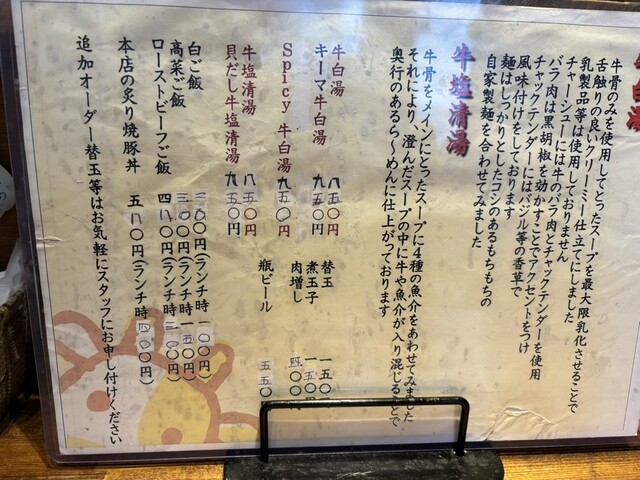 牛白湯
牛骨のみを使用してとったスープを最大限乳化させることで
舌触りの良いクリーミー仕立てにしました
乳製品等は使用しておりません
チャーシューには牛のバラ肉とチャックテンダーを使用
バラ肉は黒胡椒を効かすことでアクセントをつけ
チャックテンダーにはバジル等の香草で
風味付けをしております
麺はしっかりとしたコシのあるもちもちの
自家製麺を合わせてみました
牛塩清湯
牛骨をメインにとったスープに4種の魚介をあわせてみました
それにより、澄んだスープの中に牛や魚介が入り混じることで
奥行のあるら〜めんに仕上がっております
牛白湯 八五〇円
キーマ牛白湯 九五〇円
Spicy 牛白湯 九五〇円
牛塩清湯 八五〇円
貝だし牛塩清湯 九五〇円
替玉 一五〇
煮玉子 一五〇
肉増し 四〇〇
瓶ビール 五五〇
白ご飯 二〇〇円(ランチ時 一〇〇円)
高菜ご飯 三〇〇円(ランチ時 一五〇円)
ローストビーフご飯 四八〇円(ランチ時 三八〇円)
本店の炙り焼豚丼 五八〇円(ランチ時 四八〇円)
追加オーダー替玉等はお気軽にスタッフにお申し付けください